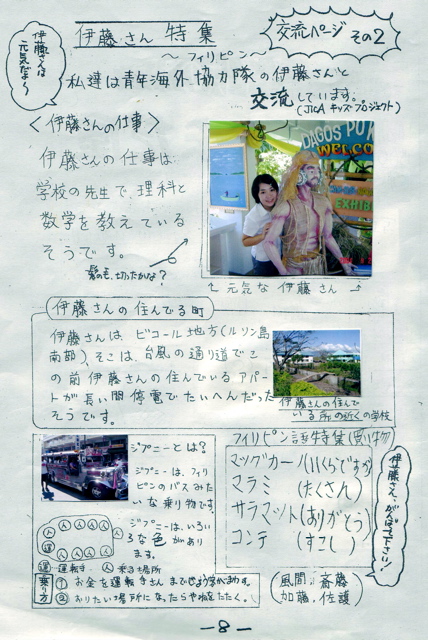 伊藤さんは
元気だよ〜
伊藤さん 特集
〜フィリピン〜
交流ページ
その2
私達は青年海外協力隊の伊藤さんと
交流しています。
(JICA キッズプロジェクト)
<伊藤さんの仕事>
伊藤さんの仕事は
学校の先生で、理科と
数学を教えている
そうです。
髪の毛、切ったかな?
WELCO
EXHIB
↑ 元気な 伊藤 さん ↑
伊藤さんの住んでる町
伊藤さんは、ビコール地方(ルソン島
南部)、そこは、台風の通り道でこ
の前伊藤さんの住んでいるアパー
トが長い間停電でたいへんだった
そうです。
伊藤さんの住んで
いる所の近くの学校
ジプニーとは?
ジプニーは、フィリ
ピンのバスみた
いな乗り物です。
ジプニーは、いろい
ろな色があり
ます。
運 運転手 人 乗る場所
乗り方
① お金を運転手さん まで
② おりたい場所に なったらや根をたたく。
フィリピン語特集(買い物)
マッグカーノ(いくらですか)
マラミ (たくさん)
サラマット(ありがとう)
コンテ (すこし)
伊藤さん、がんばって下さい!
(風間、斎藤
加藤、佐護)
－8－